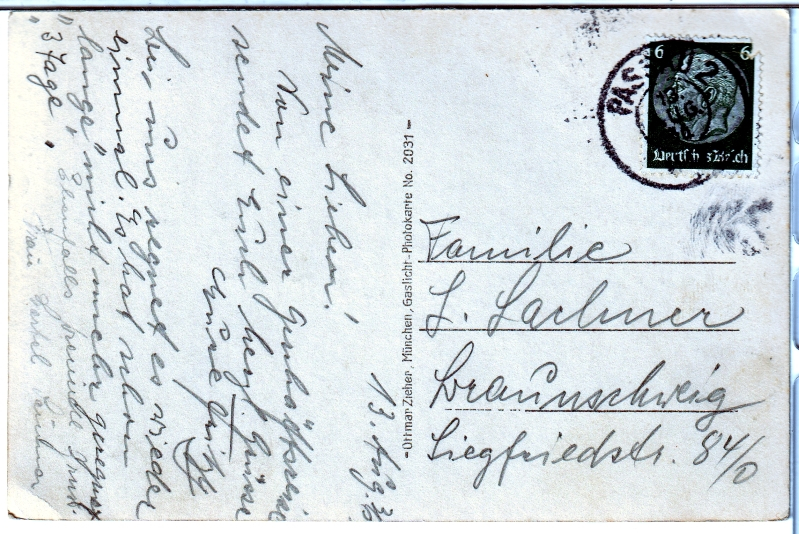 13. Aug. 36
Meine Lieben!
Von einer Geschäftsreise
sendet Euch herzl. Grüsse
Euer Fritz
Bei uns regnet es wieder
einmal. Es hat schon
"lange" nicht mehr geregnet
"3 Tage".
Ebenfalls freundliche Grüße
Frau
-Ottmar Zieher, München, Gaslicht-Photokarte No. 2031-
PASSAU 2
6 6
Deutsches Reich
Familie
L. Lachner
Braunschweig
Siegfriedstr. 84/0